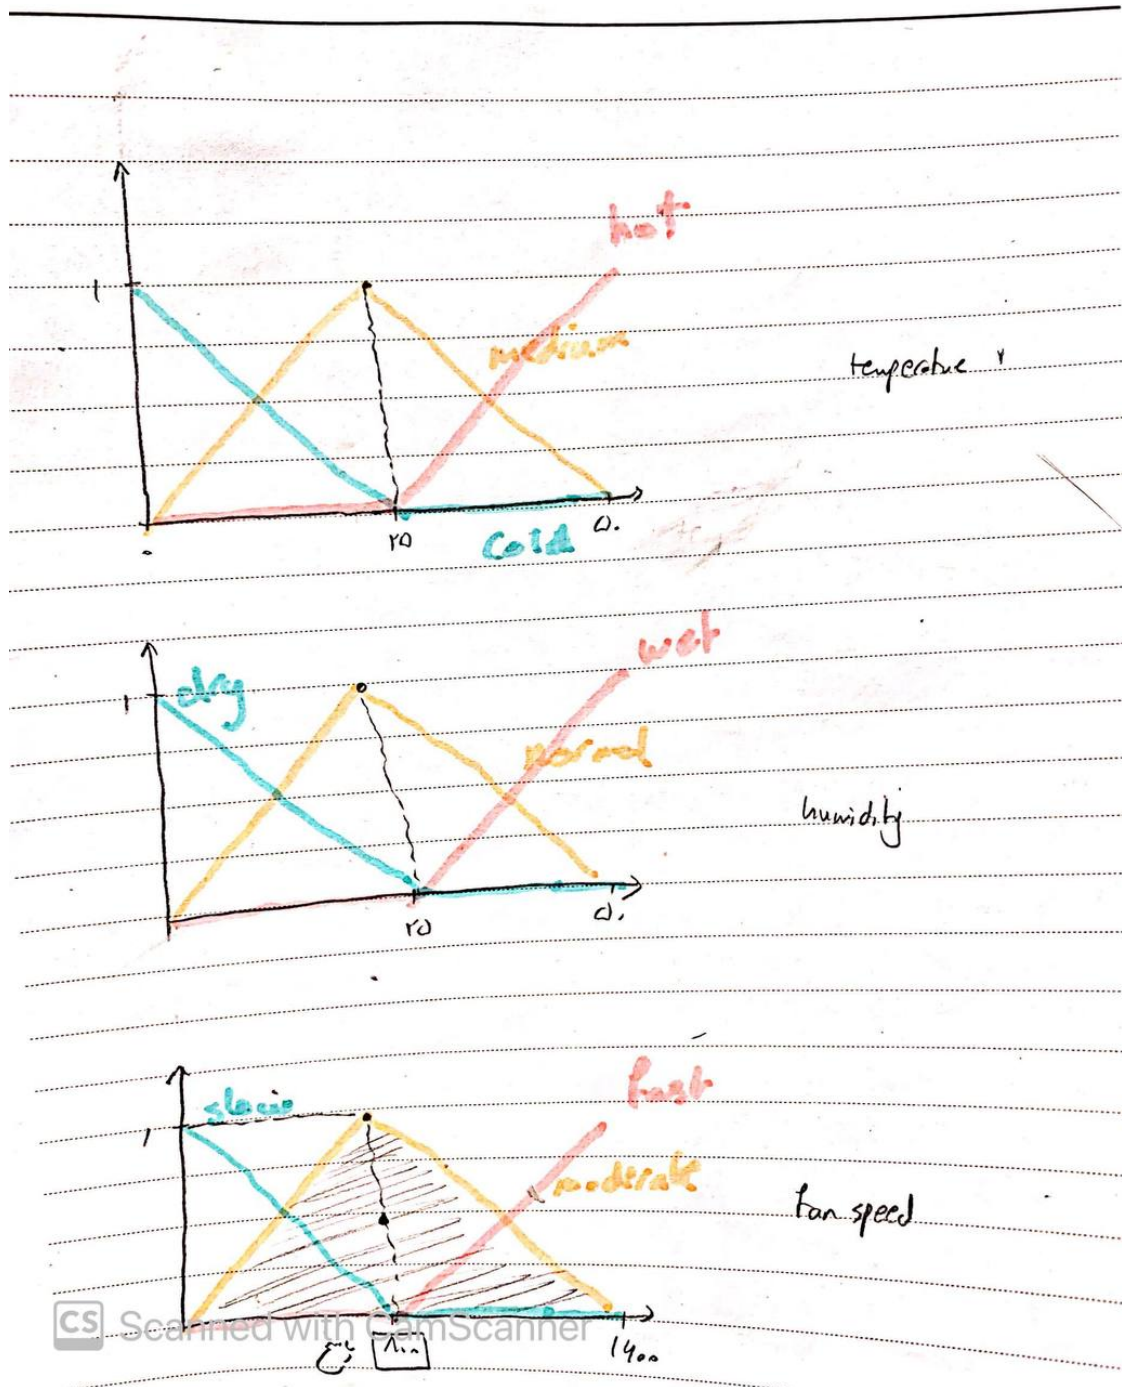 hot
۱
medium
temperature
۰
۲۵
cold
۵۰
wet
۱
dry
normal
humidity
۲۵
۵۰
fast
slow
۱
moderate
fan speed
CS Scanned with CamScanner
۸۰۰
۱۶۰۰